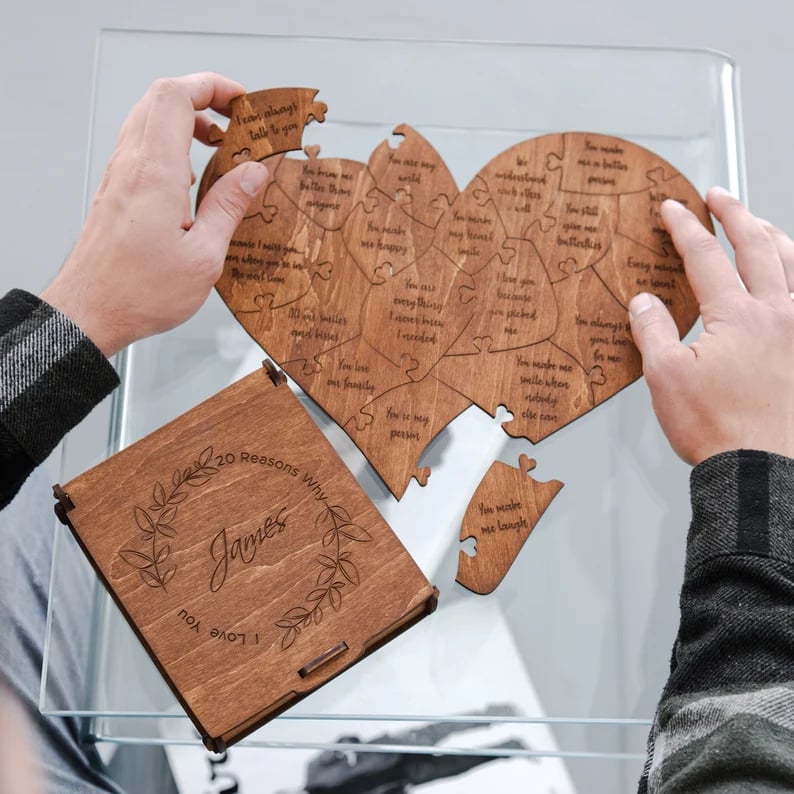 I can always
talk to you
You know me
better than
anyone
You are my
world
We
understand
each other
well
You make
me a better
person
Because I miss you...
even when you're in
the next room
You make
me happy
You make
my heart
smile
You still
give me
butterflies
Every moment
we spent
All our smiles
and kisses
You are
everything
I never knew
I needed
I love you
because
you picked
me
You always
your love
for me
You love
our family
You're my
person
You make me
smile when
nobody
else can
You make
me laugh
20 Reasons Why
James
I Love You